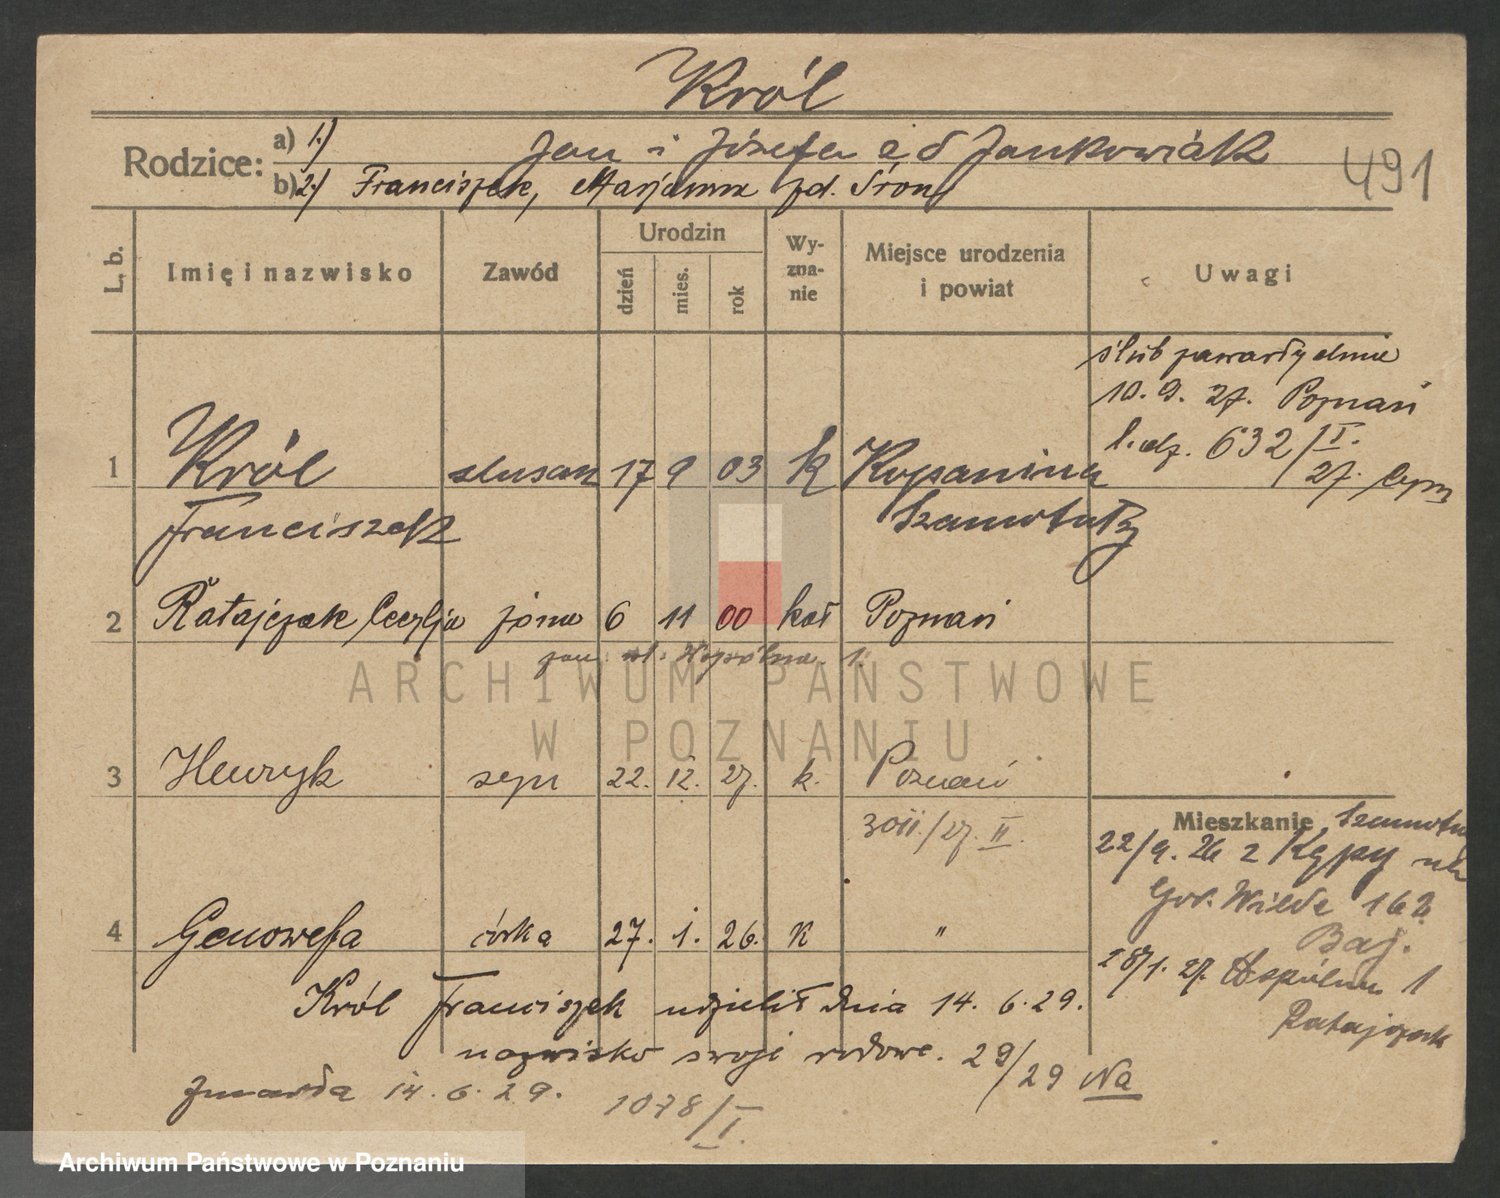 Król
Rodzice: a) 1.) Jan i Józefa z d Jankowiak
b) 2.) Franciszek, Marjanna zd. Śron
491
L. b. Imię i nazwisko Zawód Urodzin dzień mies. rok Wy-zna-nie Miejsce urodzenia i powiat Uwagi
ślub zawarty dnia
10. 9. 27. Poznań
l. dz. 632/I.
27.
1 Król ślusarz 17 9 03 k Kopanina
Franciszek Szamotuły
2 Ratajczak Cecylja żona 6 11 00 kat Poznań
zam. ul. Wspólna 1.
ARCHIWUM PAŃSTWOWE
W POZNANIU
3 Henryk syn 22. 12. 27. k. Poznań
3011/27. II.
Mieszkanie
22/9. 26 z Kępy
Gór. Wilda 162
28/1. 27. Wspólna 1
Ratajczak
4 Genowefa córka 27. 1. 26. K "
Król Franciszek udzielił dnia 14. 6. 29.
nazwisko swoje rodowe. 29/29 Na
zmarła 14. 6. 29. 1078/I.
Archiwum Państwowe w Poznaniu